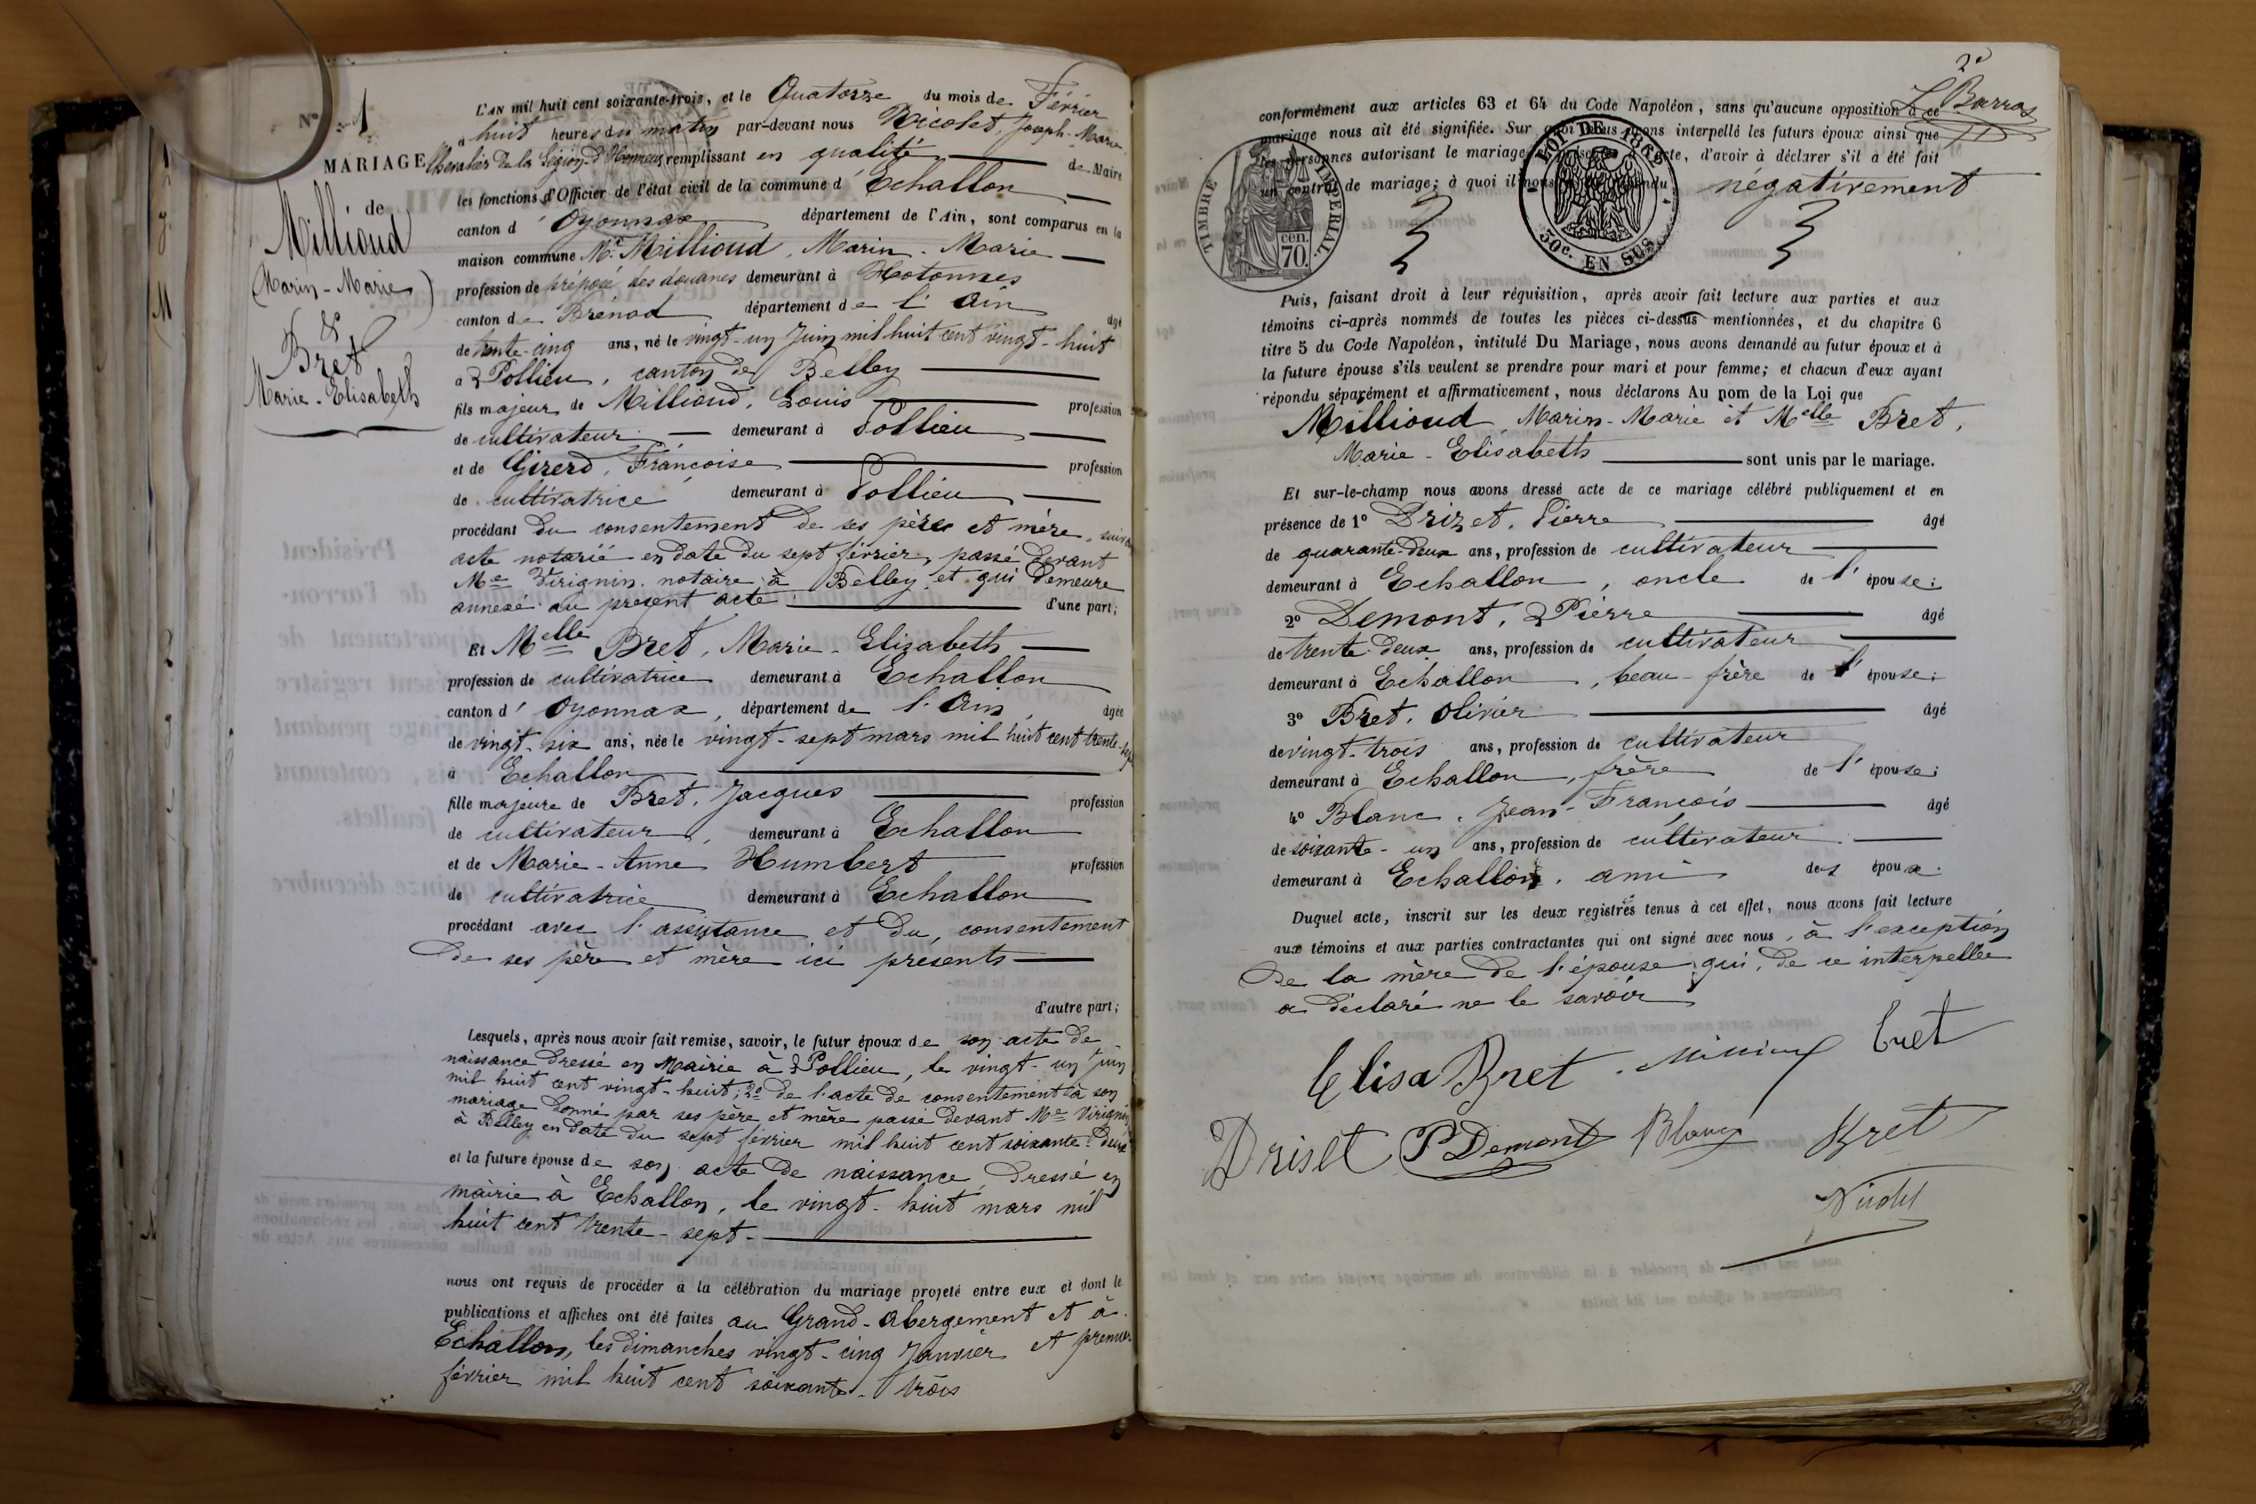 N° 1
MARIAGE
de
Millioud
(Marin-Marie)
&
Bret
Marie-Elisabeth
L'AN mil huit cent soixante-trois, et le Quatorze du mois de Février
à huit heures du matin par-devant nous Nicolet, Joseph-Marie
Chevalier de la Légion d'Honneur, remplissant en qualité de Maire
les fonctions d'Officier de l'état civil de la commune d'Echallon
canton d'Oyonnax département de l'Ain, sont comparus en la
maison commune Mr. Millioud, Marin-Marie
profession de préposé des douanes demeurant à Hotonnes
canton de Brénod département de l'Ain âgé
de trente-cinq ans, né le vingt-un Juin mil huit cent vingt-huit
à Pollieu, canton de Belley
fils majeur de Millioud, Louis profession
de cultivateur demeurant à Pollieu
et de Girerd, Françoise profession
de cultivatrice demeurant à Pollieu
procédant du consentement de ses père et mère, suivant
acte notarié en date du sept février, passé devant
Me Virignin notaire à Belley et qui demeure
annexé au présent acte d'une part;
Et Melle Bret, Marie-Elisabeth
profession de cultivatrice demeurant à Echallon
canton d'Oyonnax, département de l'Ain, âgée
de vingt-six ans, née le vingt-sept mars mil huit cent trente-sept
à Echallon
fille majeure de Bret, Jacques profession
de cultivateur, demeurant à Echallon
et de Marie-Anne Humbert profession
de cultivatrice demeurant à Echallon
procédant avec l'assistance et du consentement
de ses père et mère ici présents
d'autre part;
Lesquels, après nous avoir fait remise, savoir, le futur époux de son acte de
naissance dressé en Mairie à Pollieu, le vingt-un juin
mil huit cent vingt-huit; 2° de l'acte de consentement à son
mariage donné par ses père et mère passé devant Me Virignin
à Belley en date du sept février mil huit cent soixante-deux
et la future épouse de son acte de naissance, dressé en
mairie à Echallon, le vingt-huit mars mil
huit cent trente-sept.
nous ont requis de procéder à la célébration du mariage projeté entre eux et dont le
publications et affiches ont été faites au Grand-Abergement et à
Echallon, les dimanches vingt-cinq Janvier et premier
février mil huit cent soixante-trois
2e
L. Barras
conformément aux articles 63 et 64 du Code Napoléon, sans qu'aucune opposition à ce
mariage nous ait été signifiée. Sur quoi nous avons interpellé les futurs époux ainsi que
les personnes autorisant le mariage, d'avoir à déclarer s'il a été fait
un contrat de mariage; à quoi il nous négativement
TIMBRE IMPERIAL
cen. 70.
LOI DE 1862
50c. EN SUS
Puis, faisant droit à leur réquisition, après avoir fait lecture aux parties et aux
témoins ci-après nommés de toutes les pièces ci-dessus mentionnées, et du chapitre 6
titre 5 du Code Napoléon, intitulé Du Mariage, nous avons demandé au futur époux et à
la future épouse s'ils veulent se prendre pour mari et pour femme; et chacun d'eux ayant
répondu séparément et affirmativement, nous déclarons Au nom de la Loi que
Millioud, Marin-Marie et Melle Bret,
Marie-Elisabeth sont unis par le mariage.
Et sur-le-champ nous avons dressé acte de ce mariage célébré publiquement et en
présence de 1° Drizet, Pierre âgé
de quarante-deux ans, profession de cultivateur
demeurant à Echallon, oncle de l'épouse;
2° Demont, Pierre âgé
de trente-deux ans, profession de cultivateur
demeurant à Echallon, beau-frère de l'épouse;
3° Bret, Olivier âgé
de vingt-trois ans, profession de cultivateur
demeurant à Echallon, frère de l'épouse;
4° Blanc, Jean-François âgé
de soixante-un ans, profession de cultivateur
demeurant à Echallon, ami des époux.
Duquel acte, inscrit sur les deux registres tenus à cet effet, nous avons fait lecture
aux témoins et aux parties contractantes qui ont signé avec nous, à l'exception
de la mère de l'épouse qui, de ce interpellée
a déclaré ne le savoir
Elisa Bret Bret
Driset P Demont Blanc Bret
Nicolet